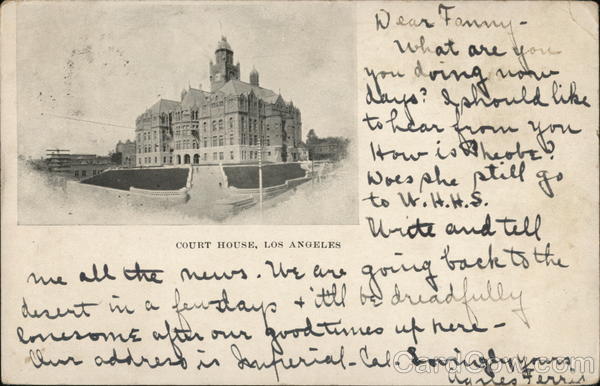 Dear Fanny-
What are you
you doing now
days? I should like
to hear from you
How is Pheobe?
Does she still go
to W.H.H.S.
Write and tell
COURT HOUSE, LOS ANGELES
me all the news. We are going back to the
desert in a few days + it'll be dreadfully
lonesome after our good times up here-
Our address is Imperial-Cal. Lovingly yours,
CardCow.com